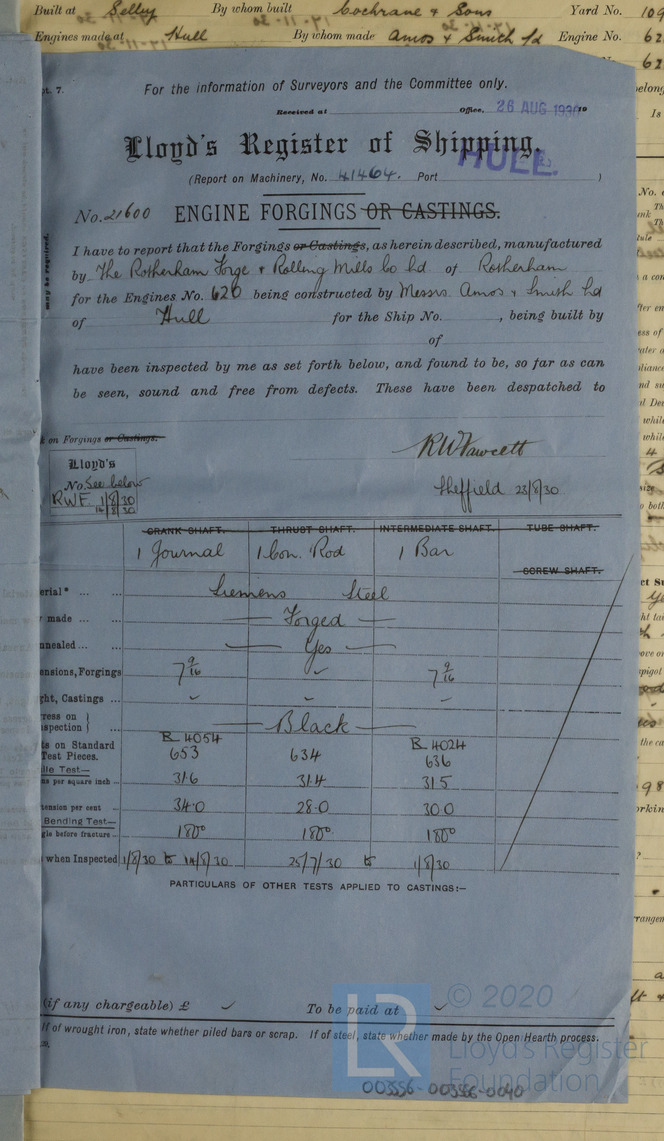 Built at Selby By whom built Cochrane & Sons Yard No. 109
Engines made at Hull By whom made Amos & Smith Ld Engine No. 62
62
pt. 7.
For the information of Surveyors and the Committee only.
Received at Office, 26 AUG 1930 19
Lloyd's Register of Shipping.
HULL.
(Report on Machinery, No. 41464. Port )
No. 21600 ENGINE FORGINGS OR CASTINGS.
I have to report that the Forgings or Castings, as herein described, manufactured
by The Rotherham Forge & Rolling Mills Co Ld of Rotherham
for the Engines No. 620 being constructed by Messrs Amos & Smith Ld
of Hull for the Ship No. , being built by
of
have been inspected by me as set forth below, and found to be, so far as can
be seen, sound and free from defects. These have been despatched to
may be required.
k on Forgings or Castings.
RW Fawcett
Lloyd's
No. See below
RWF 1/8/30
14/8/30
Sheffield 23/8/30
CRANK SHAFT. THRUST SHAFT. INTERMEDIATE SHAFT. TUBE SHAFT.
1 Journal 1 Con. Rod 1 Bar
SCREW SHAFT.
erial* ... ... Siemens Steel
made ... ... Forged
nnealed ... ... Yes
ensions, Forgings 7 9/16 ✓ 7 9/16
ght, Castings ... ✓ ✓ ✓
ress on } spection } ... Black
ts on Standard Test Pieces. R 4054 653 634 R 4024 636
ile Test—
ns per square inch ... 31.6 31.4 31.5
tension per cent ... 34.0 28.0 30.0
Bending Test—
gle before fracture ... 180° 180° 180°
when Inspected 1/8/30 to 14/8/30 25/7/30 to 1/8/30
PARTICULARS OF OTHER TESTS APPLIED TO CASTINGS:—
(if any chargeable) £ ✓ To be paid at ✓
If of wrought iron, state whether piled bars or scrap. If of steel, state whether made by the Open Hearth process.
© 2020
LR Lloyd's Register
Foundation
003556-003566-0040